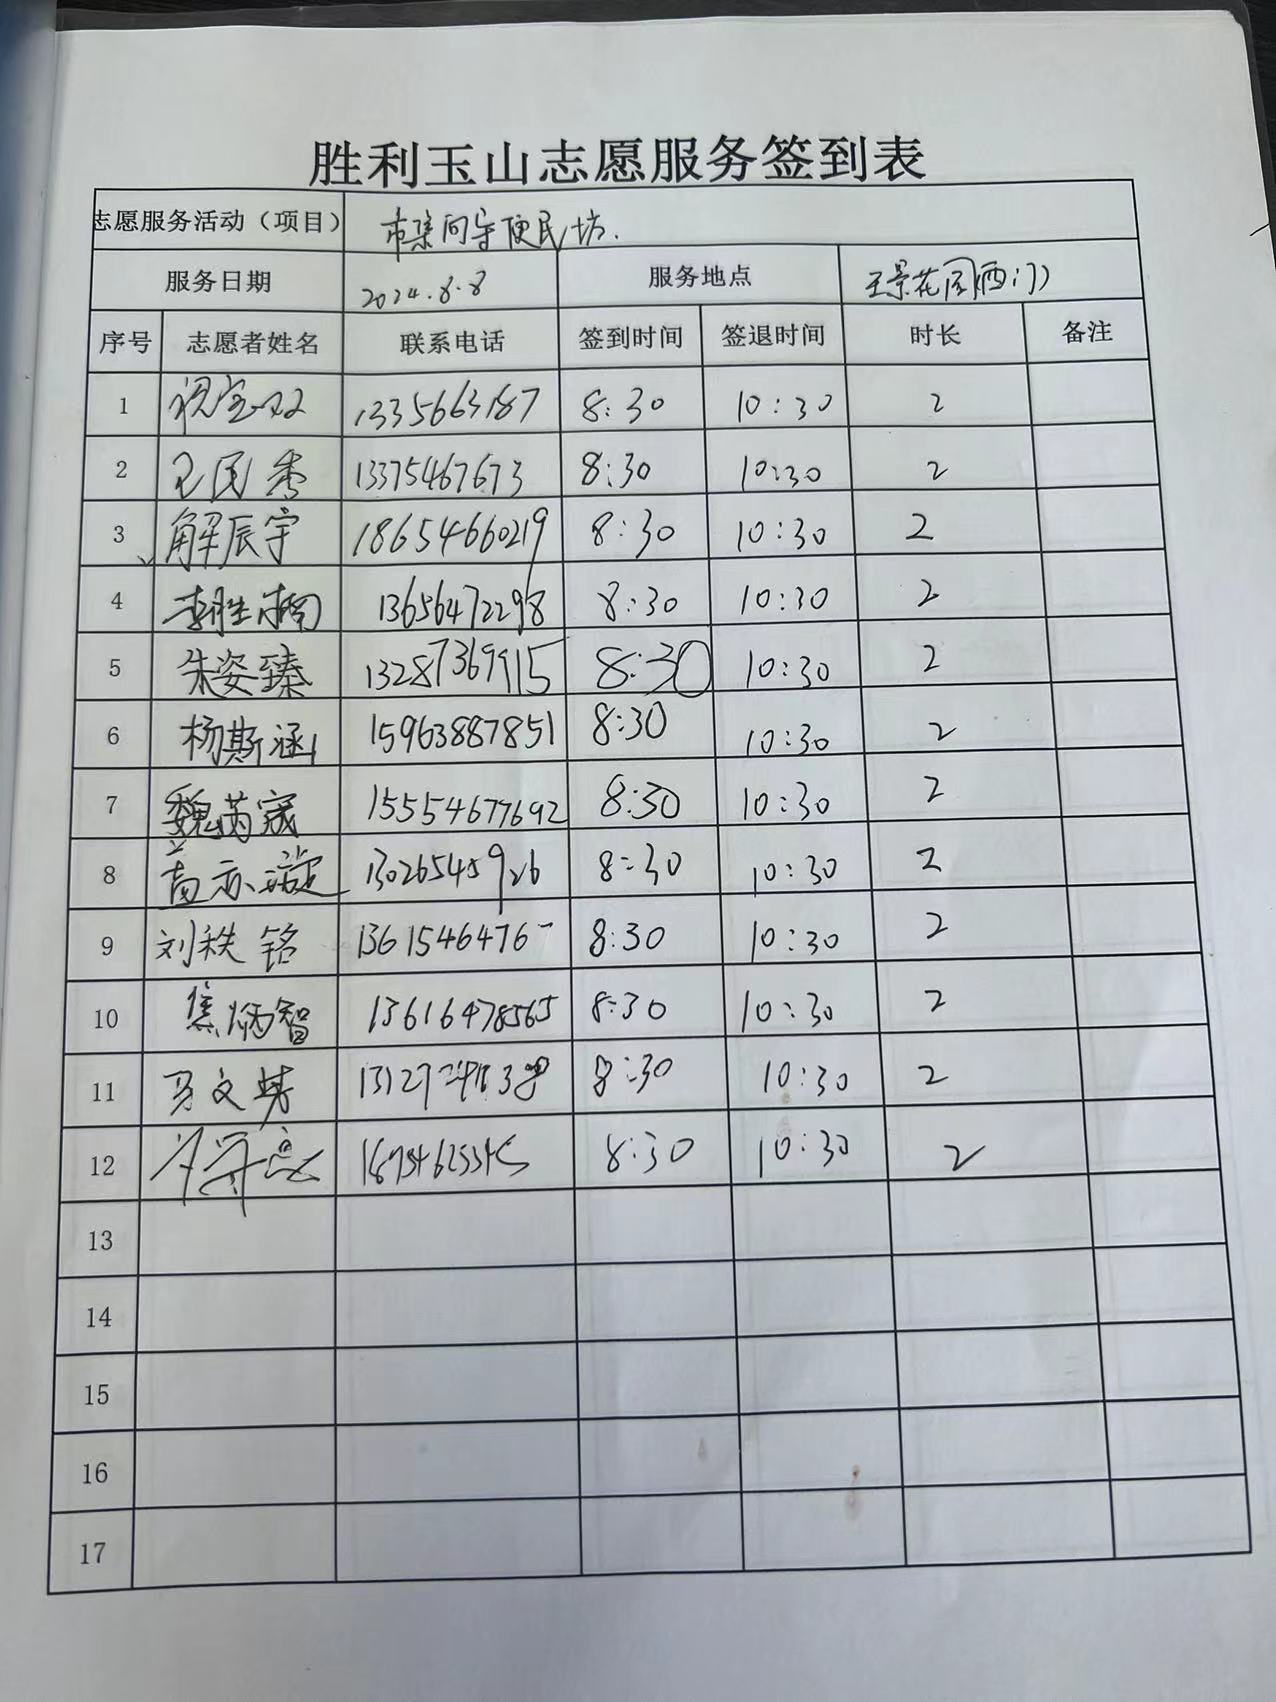 胜利玉山志愿服务签到表
志愿服务活动（项目） 市集同字便民坊.
服务日期 2024.8.8 服务地点 花园西门
序号 志愿者姓名 联系电话 签到时间 签退时间 时长 备注
1 8:30 10:30 2
2 13375467673 8:30 10:30 2
3 解辰宇 18654660219 8:30 10:30 2
4 李胜楠 13656472298 8:30 10:30 2
5 朱姿臻 13287369915 8:30 10:30 2
6 杨斯涵 15963887851 8:30 10:30 2
7 魏芮宬 15554677692 8:30 10:30 2
8 8:30 10:30 2
9 刘秩铭 8:30 10:30 2
10 焦炳智 13616478565 8:30 10:30 2
11 8:30 10:30 2
12 8:30 10:30 2
13
14
15
16
17